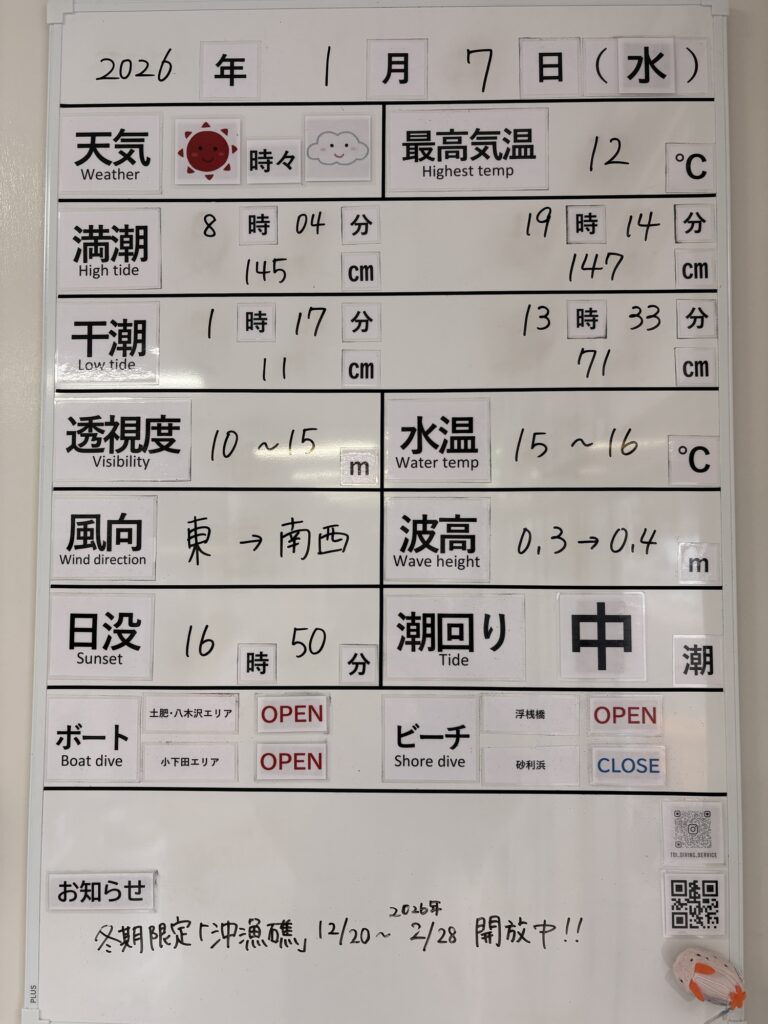 2026 年 1 月 7 日 (水)
天気 時々
Weather
最高気温 12 ℃
Highest temp
満潮 8 時 04 分 19 時 14 分
High tide 145 cm 147 cm
干潮 1 時 17 分 13 時 33 分
Low tide 11 cm 71 cm
透視度 10 ~ 15 m
Visibility
水温 15 ~ 16 ℃
Water temp
風向 東 → 南西
Wind direction
波高 0.3 → 0.4 m
Wave height
日没 16 時 50 分
Sunset
潮回り 中 潮
Tide
ボート 土肥・八木沢エリア OPEN
Boat dive 小下田エリア OPEN
ビーチ 浮桟橋 OPEN
Shore dive 砂利浜 CLOSE
TOI_DIVING_SERVICE
お知らせ
2026年
冬期限定「沖漁礁」 12/20~ 2/28 開放中!!
PLUS